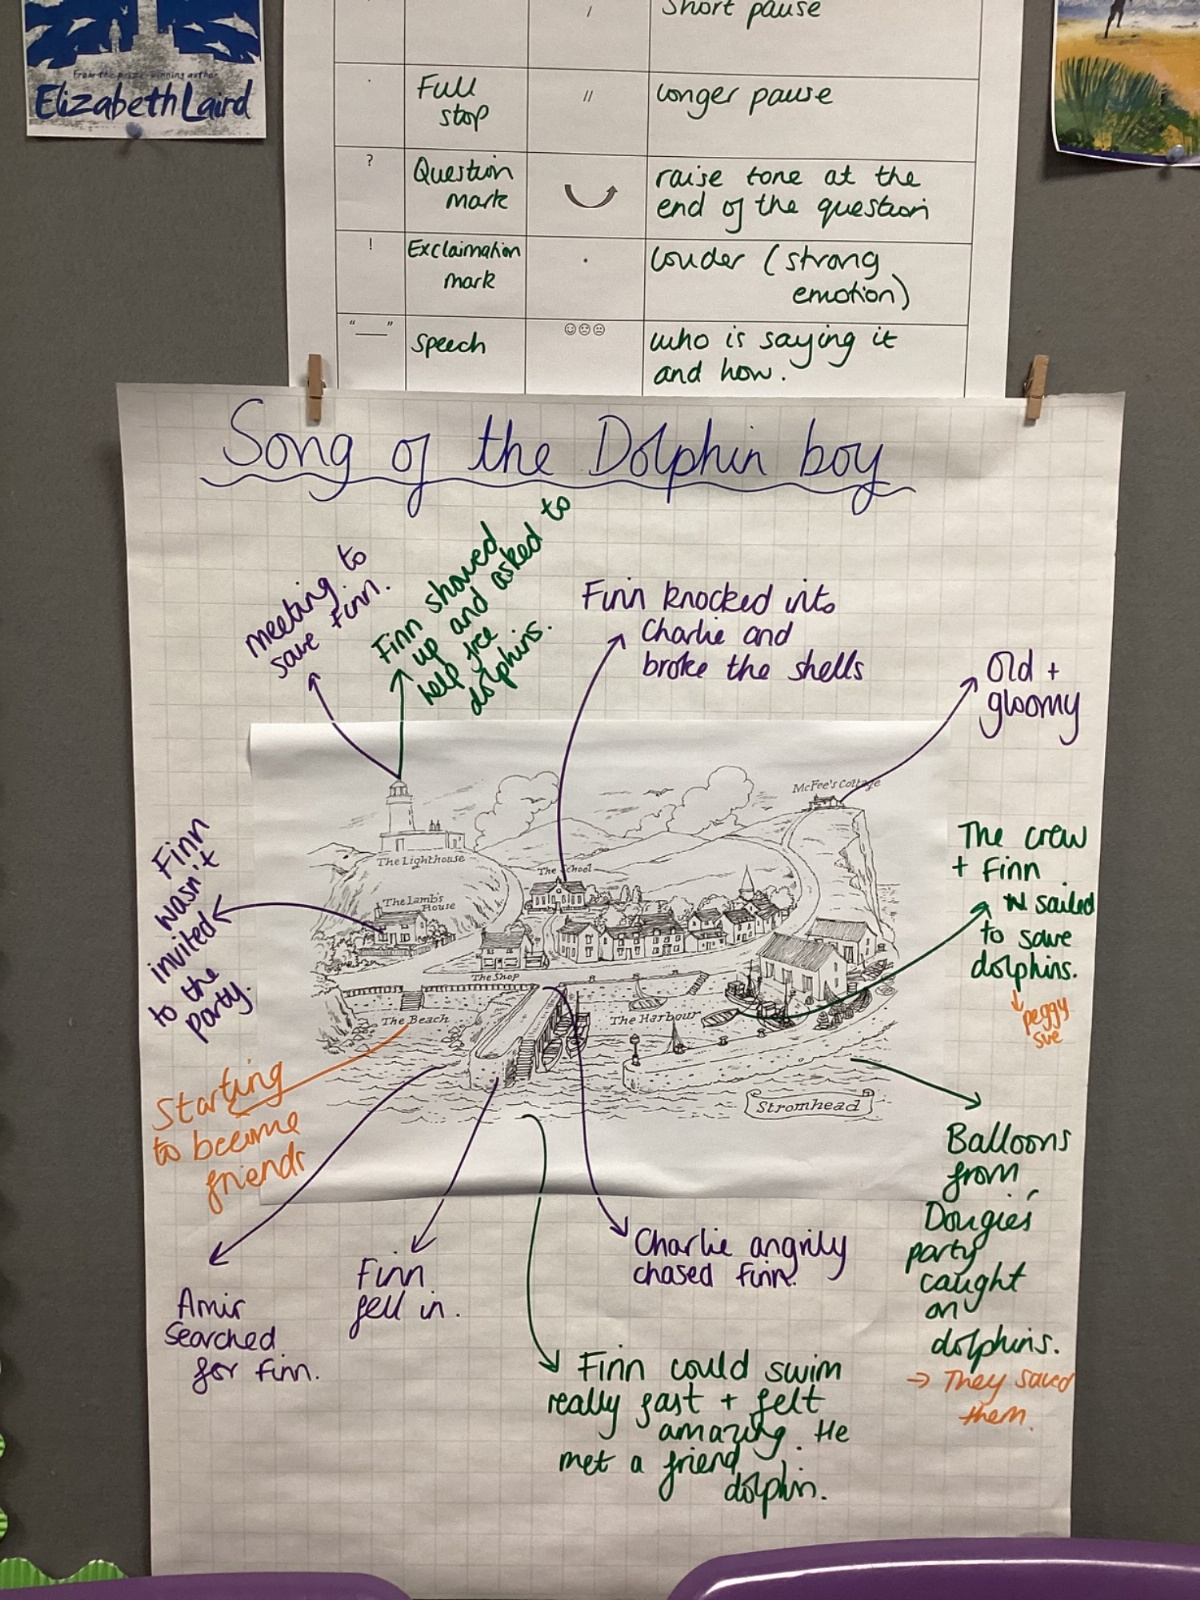 From the prize-winning author
Elizabeth Laird
/ Short pause
. Full stop // longer pause
? Question mark raise tone at the end of the question
! Exclaimation mark . louder (strong emotion)
"——" speech ☺☹☹ who is saying it and how.
Song of the Dolphin boy
meeting to
save Finn.
Finn showed
up and asked to
help free
dolphins.
Finn knocked into
Charlie and
broke the shells
Old +
gloomy
Finn
wasn't
invited
to the
party.
The crew
+ Finn
sailed
to save
dolphins.
peggy
sue
McFee's Cottage
The Lighthouse
The School
The Lamb's
House
The Shop
The Beach
The Harbour
Stromhead
Starting
to become
friends
Amir
Searched
for Finn.
Finn
fell in.
Charlie angrily
chased Finn.
Balloons
from
Dougies
party
caught
on
dolphins.
→ They saved
them.
Finn could swim
really fast + felt
amazing. He
met a friend
dolphin.